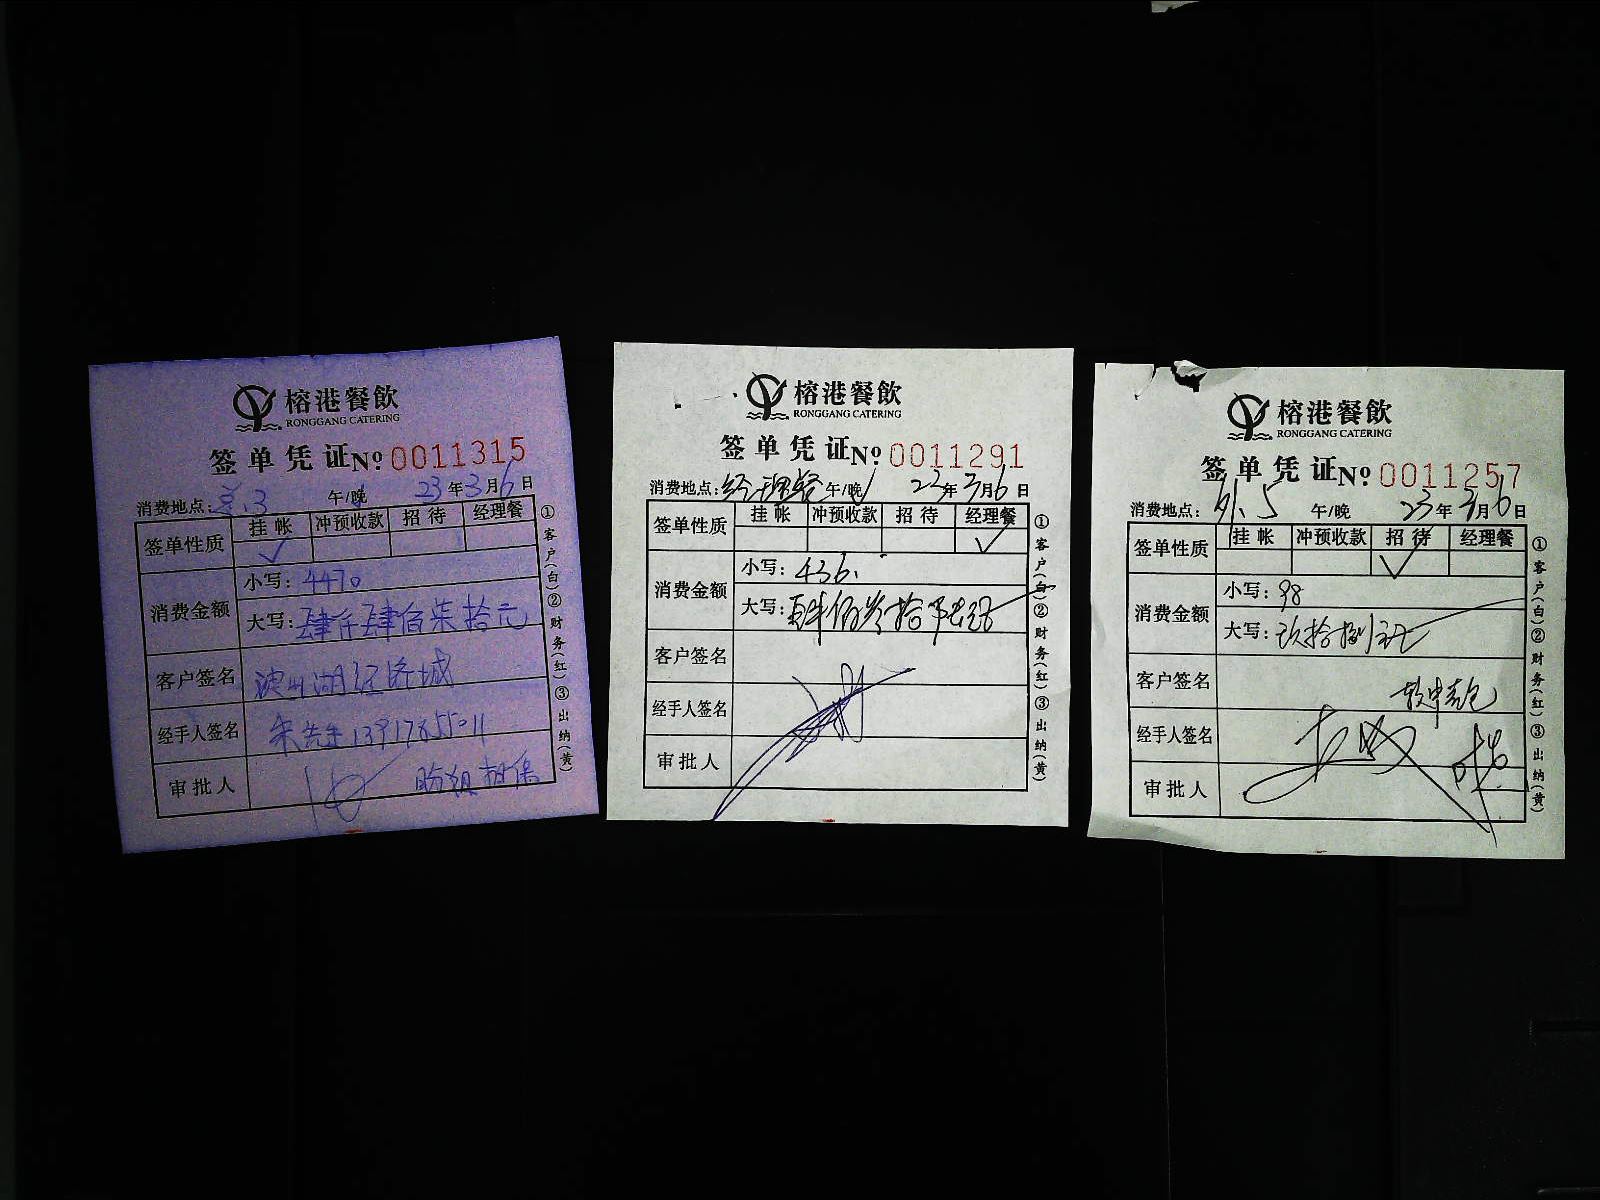 榕港餐飲
RONGGANG CATERING
签单凭证 No 0011315
消费地点: 3 午/晚 23年3月6日
签单性质 挂帐 冲预收款 招待 经理餐
✓
消费金额 小写: 4470
大写: 肆仟肆佰柒拾元
客户签名 湖经济城
经手人签名 朱先生 13917855011
审批人 担保
①客户(白)②财务(红)③出纳(黄)
榕港餐飲
RONGGANG CATERING
签单凭证 No 0011291
消费地点: 经理餐 午/晚 23年3月6日
签单性质 挂帐 冲预收款 招待 经理餐
✓
消费金额 小写: 436.
大写: 肆佰叁拾
客户签名
经手人签名
审批人
①客户(白)②财务(红)③出纳(黄)
榕港餐飲
RONGGANG CATERING
签单凭证 No 0011257
消费地点: 5 午/晚 23年3月6日
签单性质 挂帐 冲预收款 招待 经理餐
✓
消费金额 小写: 98
大写: 玖拾捌元
客户签名
经手人签名
审批人
①客户(白)②财务(红)③出纳(黄)